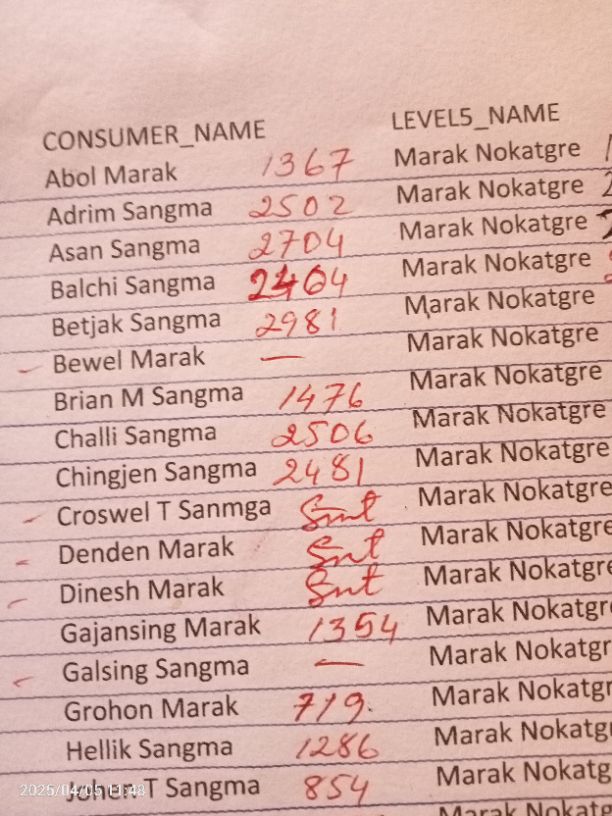 CONSUMER_NAME LEVEL5_NAME
Abol Marak 1367 Marak Nokatgre
Adrim Sangma 2502 Marak Nokatgre
Asan Sangma 2704 Marak Nokatgre
Balchi Sangma 2464 Marak Nokatgre
Betjak Sangma 2981 Marak Nokatgre
Bewel Marak — Marak Nokatgre
Brian M Sangma 1476 Marak Nokatgre
Challi Sangma 2506 Marak Nokatgre
Chingjen Sangma 2481 Marak Nokatgre
Croswel T Sanmga Marak Nokatgre
Denden Marak Marak Nokatgre
Dinesh Marak Marak Nokatgre
Gajansing Marak 1354 Marak Nokatgr
Galsing Sangma — Marak Nokatgr
Grohon Marak 719. Marak Nokatgr
Hellik Sangma 1286 Marak Nokatg
T Sangma 854 Marak Nokatg
Marak Nokatg
2025/04/05 11:48